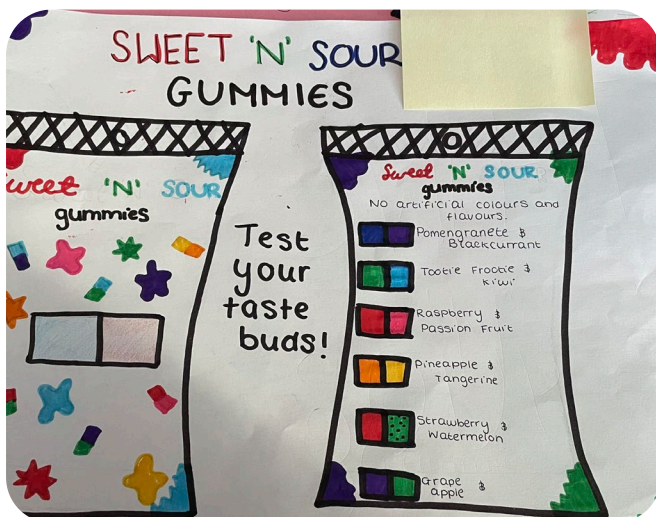 SWEET 'N' SOUR
GUMMIES
Sweet 'N' SOUR
gummies
Test
your
taste
buds!
Sweet 'N' SOUR
gummies
No artificial colours and
flavours.
Pomengranete &
Blackcurrant
Tootie Frootie &
kiwi
Raspberry &
Passion Fruit
Pineapple &
Tangerine
Strawberry &
Watermelon
Grape &
apple